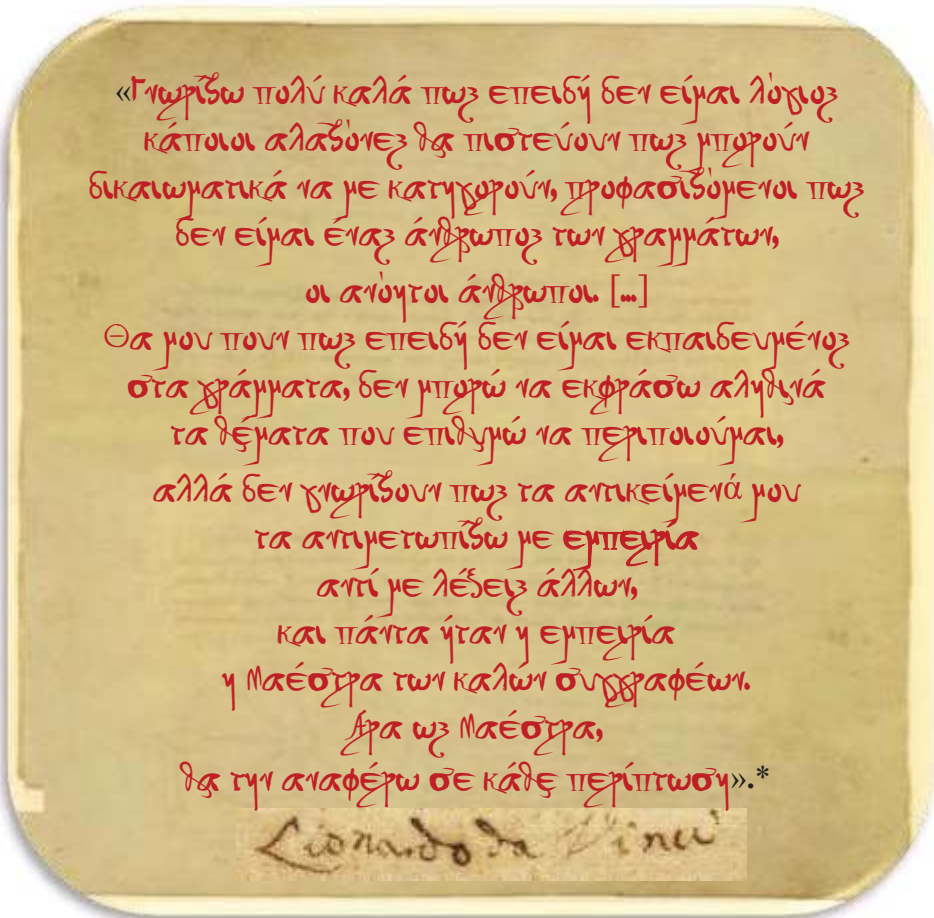 «Γνωρίζω πολύ καλά πως επειδή δεν είμαι λόγιος
κάποιοι αλαζόνες θα πιστεύουν πως μπορούν
δικαιωματικά να με κατηγορούν, προφασιζόμενοι πως
δεν είμαι ένας άνθρωπος των γραμμάτων,
οι ανόητοι άνθρωποι. [...]
Θα μου πουν πως επειδή δεν είμαι εκπαιδευμένος
στα γράμματα, δεν μπορώ να εκφράσω αληθινά
τα θέματα που επιθυμώ να περιποιούμαι,
αλλά δεν γνωρίζουν πως τα αντικείμενά μου
τα αντιμετωπίζω με εμπειρία
αντί με λέξεις άλλων,
και πάντα ήταν η εμπειρία
η Μαέστρα των καλών συγγραφέων.
Άρα ως Μαέστρα,
θα την αναφέρω σε κάθε περίπτωση».*
Lionardo da Vinci